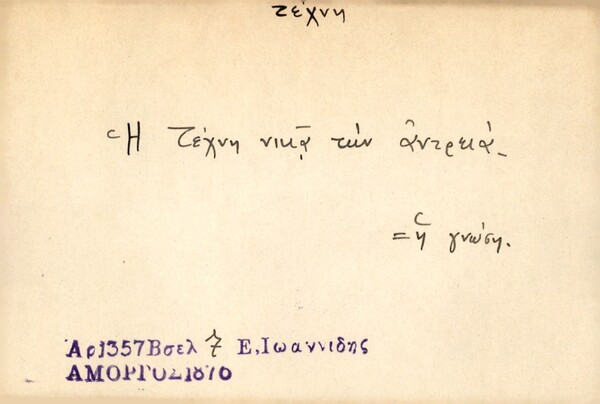 τέχνη
Ἡ τέχνη νικᾷ τὴν ἀντρειά.
= ἡ γνώση.
Ἀρ1357Βσελ 7 Ε,Ιωαννιδης
ΑΜΟΡΓΟΣ1876